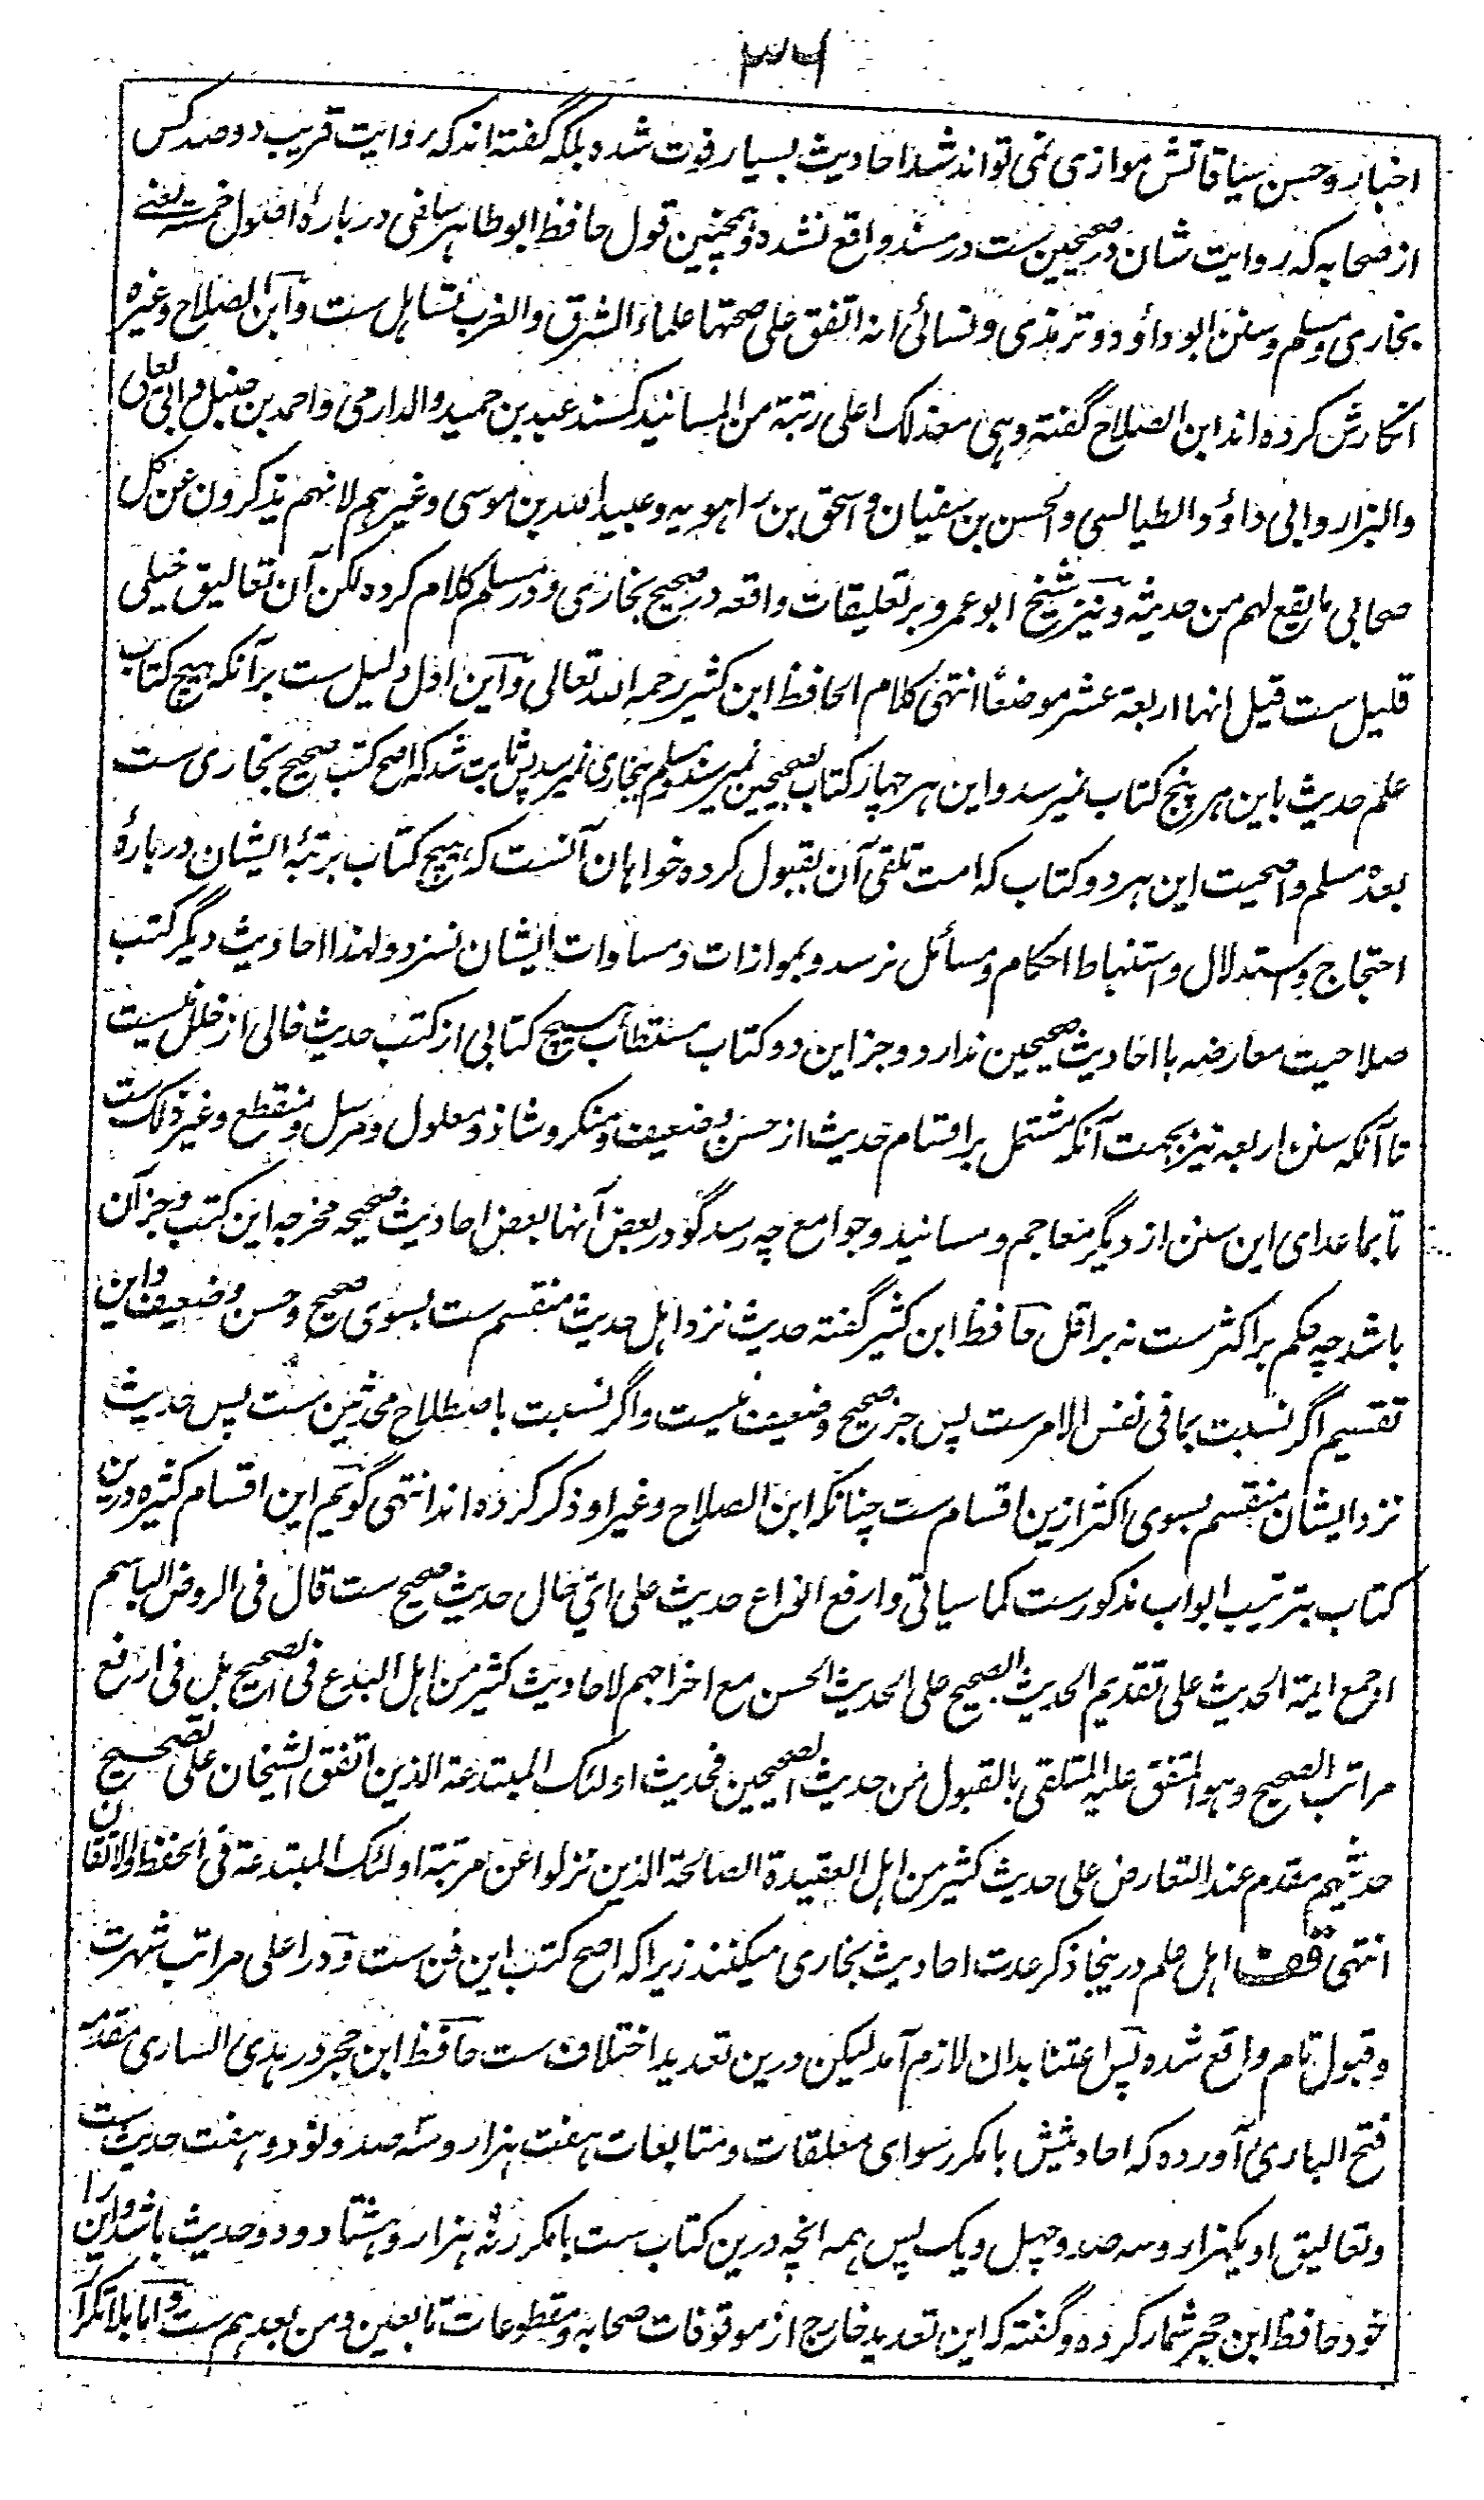 ٣٦
اخبار و حسن سیاقاتش موازی نمی تواند شد احادیث بسیار فوت شده بلکه گفته اند که روایت قریب دوصد کس
از صحابه که روایت شان در صحیحین ست در مسند واقع نشده و همچنین قول حافظ ابو طاهر سلفی در بارهٔ اصول خمسه یعنی
بخاری و مسلم و سنن ابو داؤد و ترمذی و نسائی انه اتفق علی صحتها علماء الشرق والغرب تساهل ست و ابن الصلاح وغیره
انکارش کرده اند ابن الصلاح گفته وهی معذلک اعلی رتبة من المسانید کمسند عبد بن حمید والدارمی واحمد بن حنبل وابی یعلی
والبزار وابی داؤد الطیالسی والحسن بن سفیان واسحق بن راهویه وعبید الله بن موسی وغیرهم لانهم یذکرون عن کل
صحابی ما یقع لهم من حدیثه و نیز شیخ ابو عمرو بر تعلیقات واقعه در صحیح بخاری و در مسلم کلام کرده لکن آن تعالیق خیلی
قلیل ست قیل انها اربعة عشر موضعًا انتهی کلام الحافظ ابن کثیر رحمه الله تعالی و این ادل دلیل ست برآنکه هیچ کتاب
علم حدیث باین هر پنج کتاب نمیرسد و این هر چهار کتاب بصحیحین نمیرسند و مسلم ببخاری نمیرسد پس ثابت شد که اصح کتب صحیح بخاری ست
بعدهٔ مسلم و اصحیت این هر دو کتاب که امت تلقی آن بقبول کرده خواهان آنست که هیچ کتاب برتبهٔ ایشان دربارهٔ
احتجاج و استدلال و استنباط احکام و مسائل نرسد و بموازات و مساوات ایشان نسزد و لهذا احادیث دیگر کتب
صلاحیت معارضه با احادیث صحیحین ندارد و جز این دو کتاب مستطاب هیچ کتابی از کتب حدیث خالی از خلل نیست
تا آنکه سنن اربعه نیز بجهت آنکه مشتمل بر اقسام حدیث از حسن و ضعیف و منکر و شاذ و معلول و مرسل و منقطع وغیر ذلک ست
تا بماعدای این سنن از دیگر معاجم و مسانید و جوامع چه رسد گو در بعض آنها بعض احادیث صحیحه مخرجه این کتب و جز آن
باشد چه حکم بر اکثر ست نه بر اقل حافظ ابن کثیر گفته حدیث نزد اهل حدیث منقسم ست بسوی صحیح و حسن و ضعیف و این
تقسیم اگر نسبت بما فی نفس الامر ست پس جز صحیح و ضعیف نیست و اگر نسبت باصطلاح محدثین ست پس حدیث
نزد ایشان منقسم بسوی اکثر ازین اقسام ست چنانکه ابن الصلاح و غیر او ذکر کرده اند انتهی گویم این اقسام کثیره درین
کتاب بترتیب ابواب مذکور ست کما سیاتی وارفع انواع حدیث علی ای حال حدیث صحیح ست قال فی الروض الباسم
اجمع ایمة الحدیث علی تقدیم الحدیث الصحیح علی الحدیث الحسن مع اخراجهم لاحادیث کثیر من اهل البدع فی الصحیح بل فی ارفع
مراتب الصحیح وهو المتفق علیه المتلقی بالقبول من حدیث الصحیحین فحدیث اولئک المبتدعة الذین اتفق الشیخان علی تصحیح
حدیثهم مقدم عند التعارض علی حدیث کثیر من اهل العقیدة الصالحة الذین نزلوا عن مرتبة اولئک المبتدعة فی الحفظ والاتقان
انتهی قف اهل علم درینجا ذکر عدت احادیث بخاری میکنند زیرا که اصح کتب این فن ست و در اعلی مراتب شهرت
و قبول تام واقع شده پس اعتنا بدان لازم آمد لیکن درین تعدید اختلاف ست حافظ ابن حجر در هدی الساری مقدمه
فتح الباری آورده که احادیثش بامکرر سوای معلقات و متابعات هفت هزار و سه صد و نود و هفت حدیث ست
و تعالیق او یکهزار و سه صد و چهل و یک پس همه انچه درین کتاب ست بامکرر نه هزار و هشتاد و دو حدیث باشد و این را
خود حافظ ابن حجر شمار کرده و گفته که این تعدید خارج از موقوفات صحابه و مقطوعات تابعین و من بعدهم ست و اما بلاتکرار